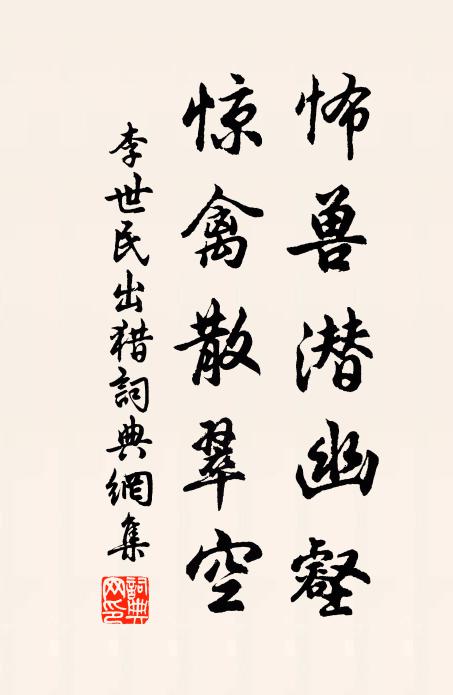 怖兽潜幽壑
惊禽散翠空
李世民出猎詞典網集
詞典网印